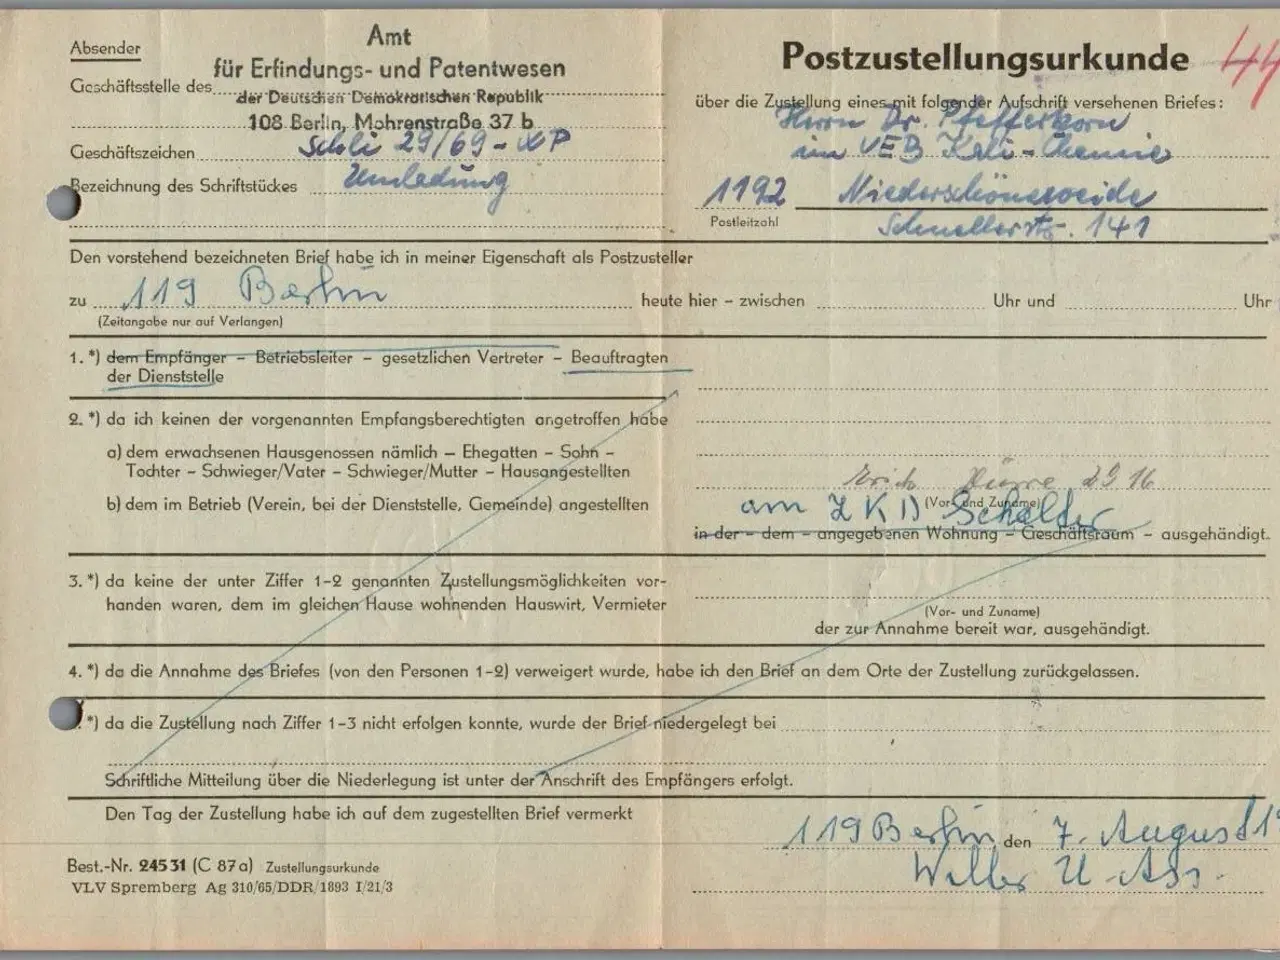 Absender
Amt
für Erfindungs- und Patentwesen
Geschäftsstelle des
der Deutschen Demokratischen Republik
108 Berlin, Mohrenstraße 37 b
Geschäftszeichen Schli 29/69 - XP
Bezeichnung des Schriftstückes Umladung
Postzustellungsurkunde 44
über die Zustellung eines mit folgender Aufschrift versehenen Briefes:
Herrn Dr. Pfefferkorn
im VEB Kali-Chemie
1192 Niederschöneweide
Postleitzahl
Schnellerstr. 141
Den vorstehend bezeichneten Brief habe ich in meiner Eigenschaft als Postzusteller
zu 119 Berlin heute hier – zwischen Uhr und Uhr
(Zeitangabe nur auf Verlangen)
1. *) dem Empfänger – Betriebsleiter – gesetzlichen Vertreter – Beauftragten
der Dienststelle
2. *) da ich keinen der vorgenannten Empfangsberechtigten angetroffen habe
a) dem erwachsenen Hausgenossen nämlich – Ehegatten – Sohn –
Tochter – Schwieger/Vater – Schwieger/Mutter – Hausangestellten
b) dem im Betrieb (Verein, bei der Dienststelle, Gemeinde) angestellten
Erich 2916
(Vor- und Zuname)
am ZKD Schalter
in der – dem – angegebenen Wohnung – Geschäftsraum – ausgehändigt.
3. *) da keine der unter Ziffer 1–2 genannten Zustellungsmöglichkeiten vor-
handen waren, dem im gleichen Hause wohnenden Hauswirt, Vermieter
(Vor- und Zuname)
der zur Annahme bereit war, ausgehändigt.
4. *) da die Annahme des Briefes (von den Personen 1–2) verweigert wurde, habe ich den Brief an dem Orte der Zustellung zurückgelassen.
*) da die Zustellung nach Ziffer 1–3 nicht erfolgen konnte, wurde der Brief niedergelegt bei
Schriftliche Mitteilung über die Niederlegung ist unter der Anschrift des Empfängers erfolgt.
Den Tag der Zustellung habe ich auf dem zugestellten Brief vermerkt
119 Berlin, den 7. August 19
Willer U-Ass.
Best.-Nr. 24531 (C 87a) Zustellungsurkunde
VLV Spremberg Ag 310/65/DDR/1893 I/21/3